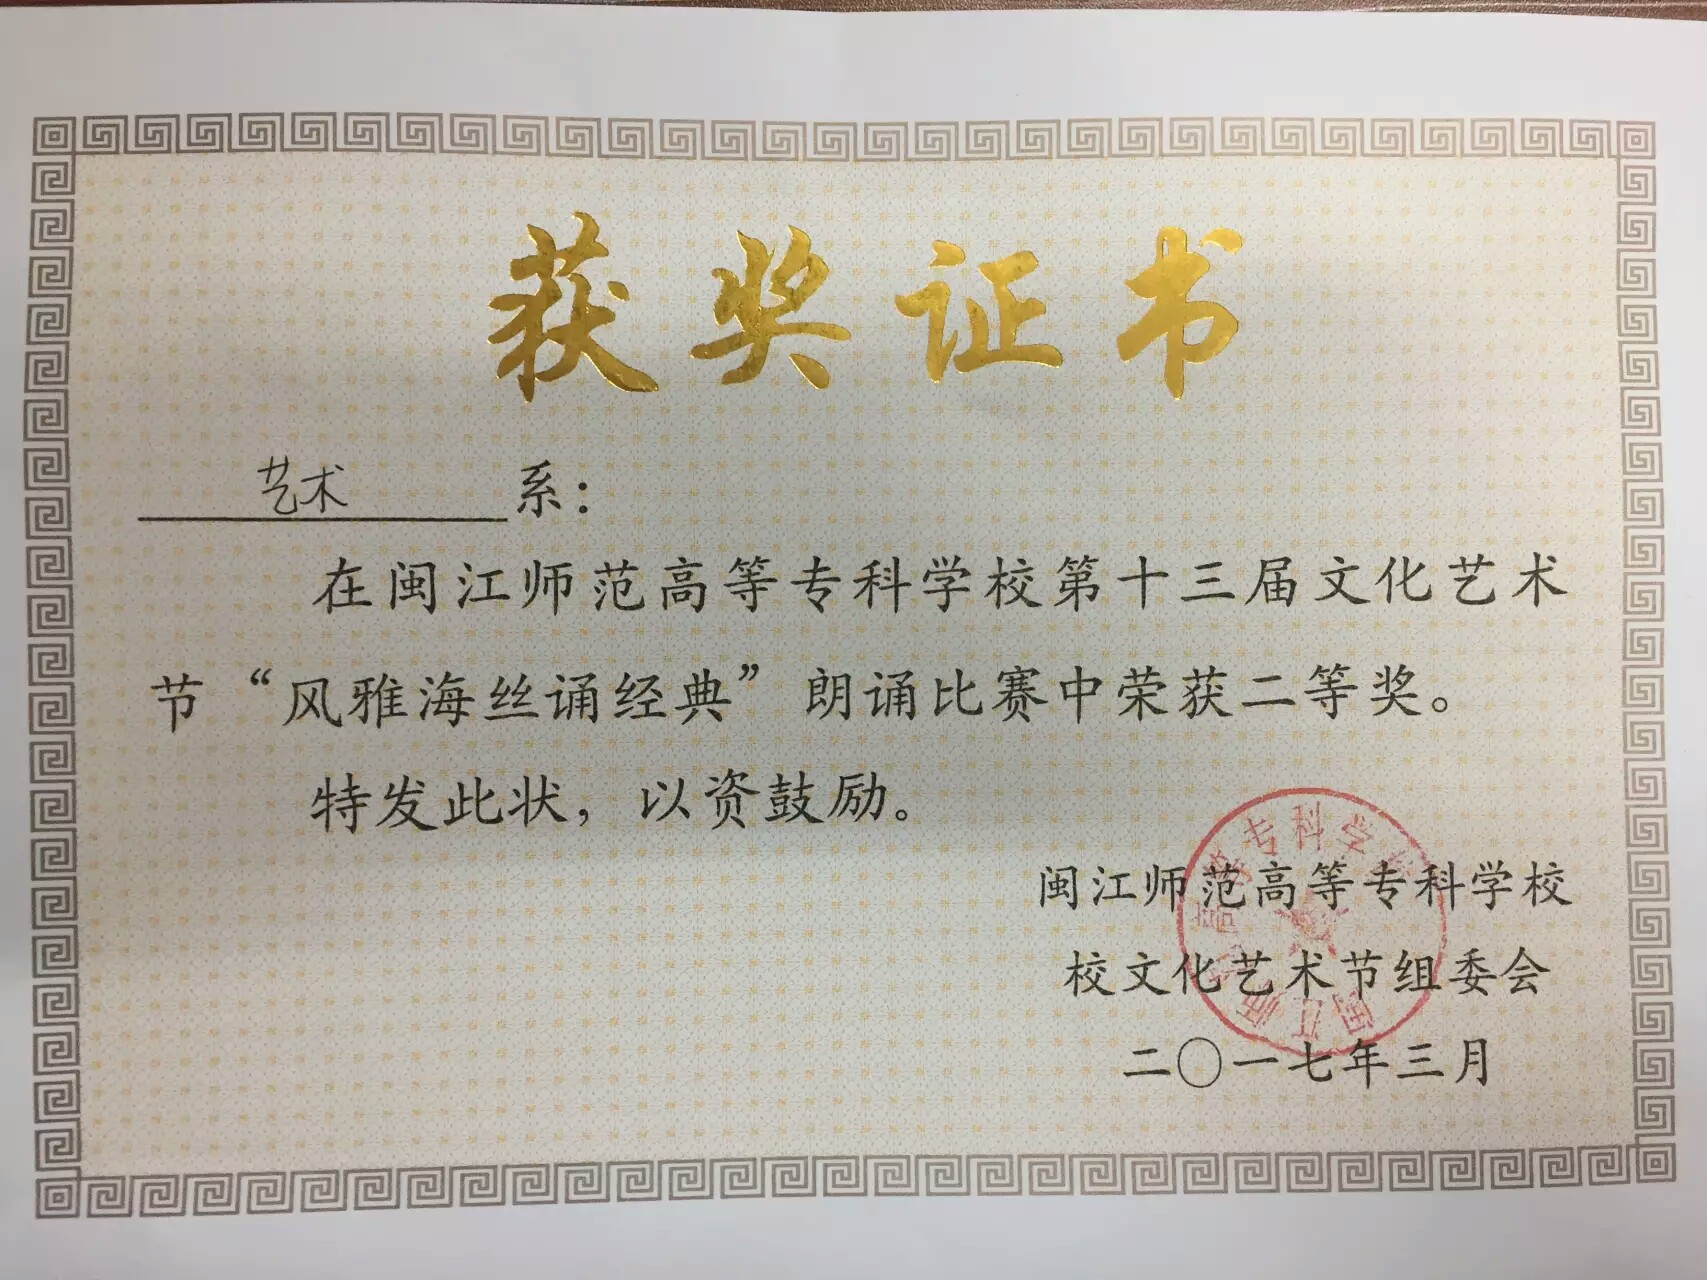 获奖证书
艺术系：
在闽江师范高等专科学校第十三届文化艺术
节“风雅海丝诵经典”朗诵比赛中荣获二等奖。
特发此状，以资鼓励。
闽江师范高等专科学校
校文化艺术节组委会
二〇一七年三月